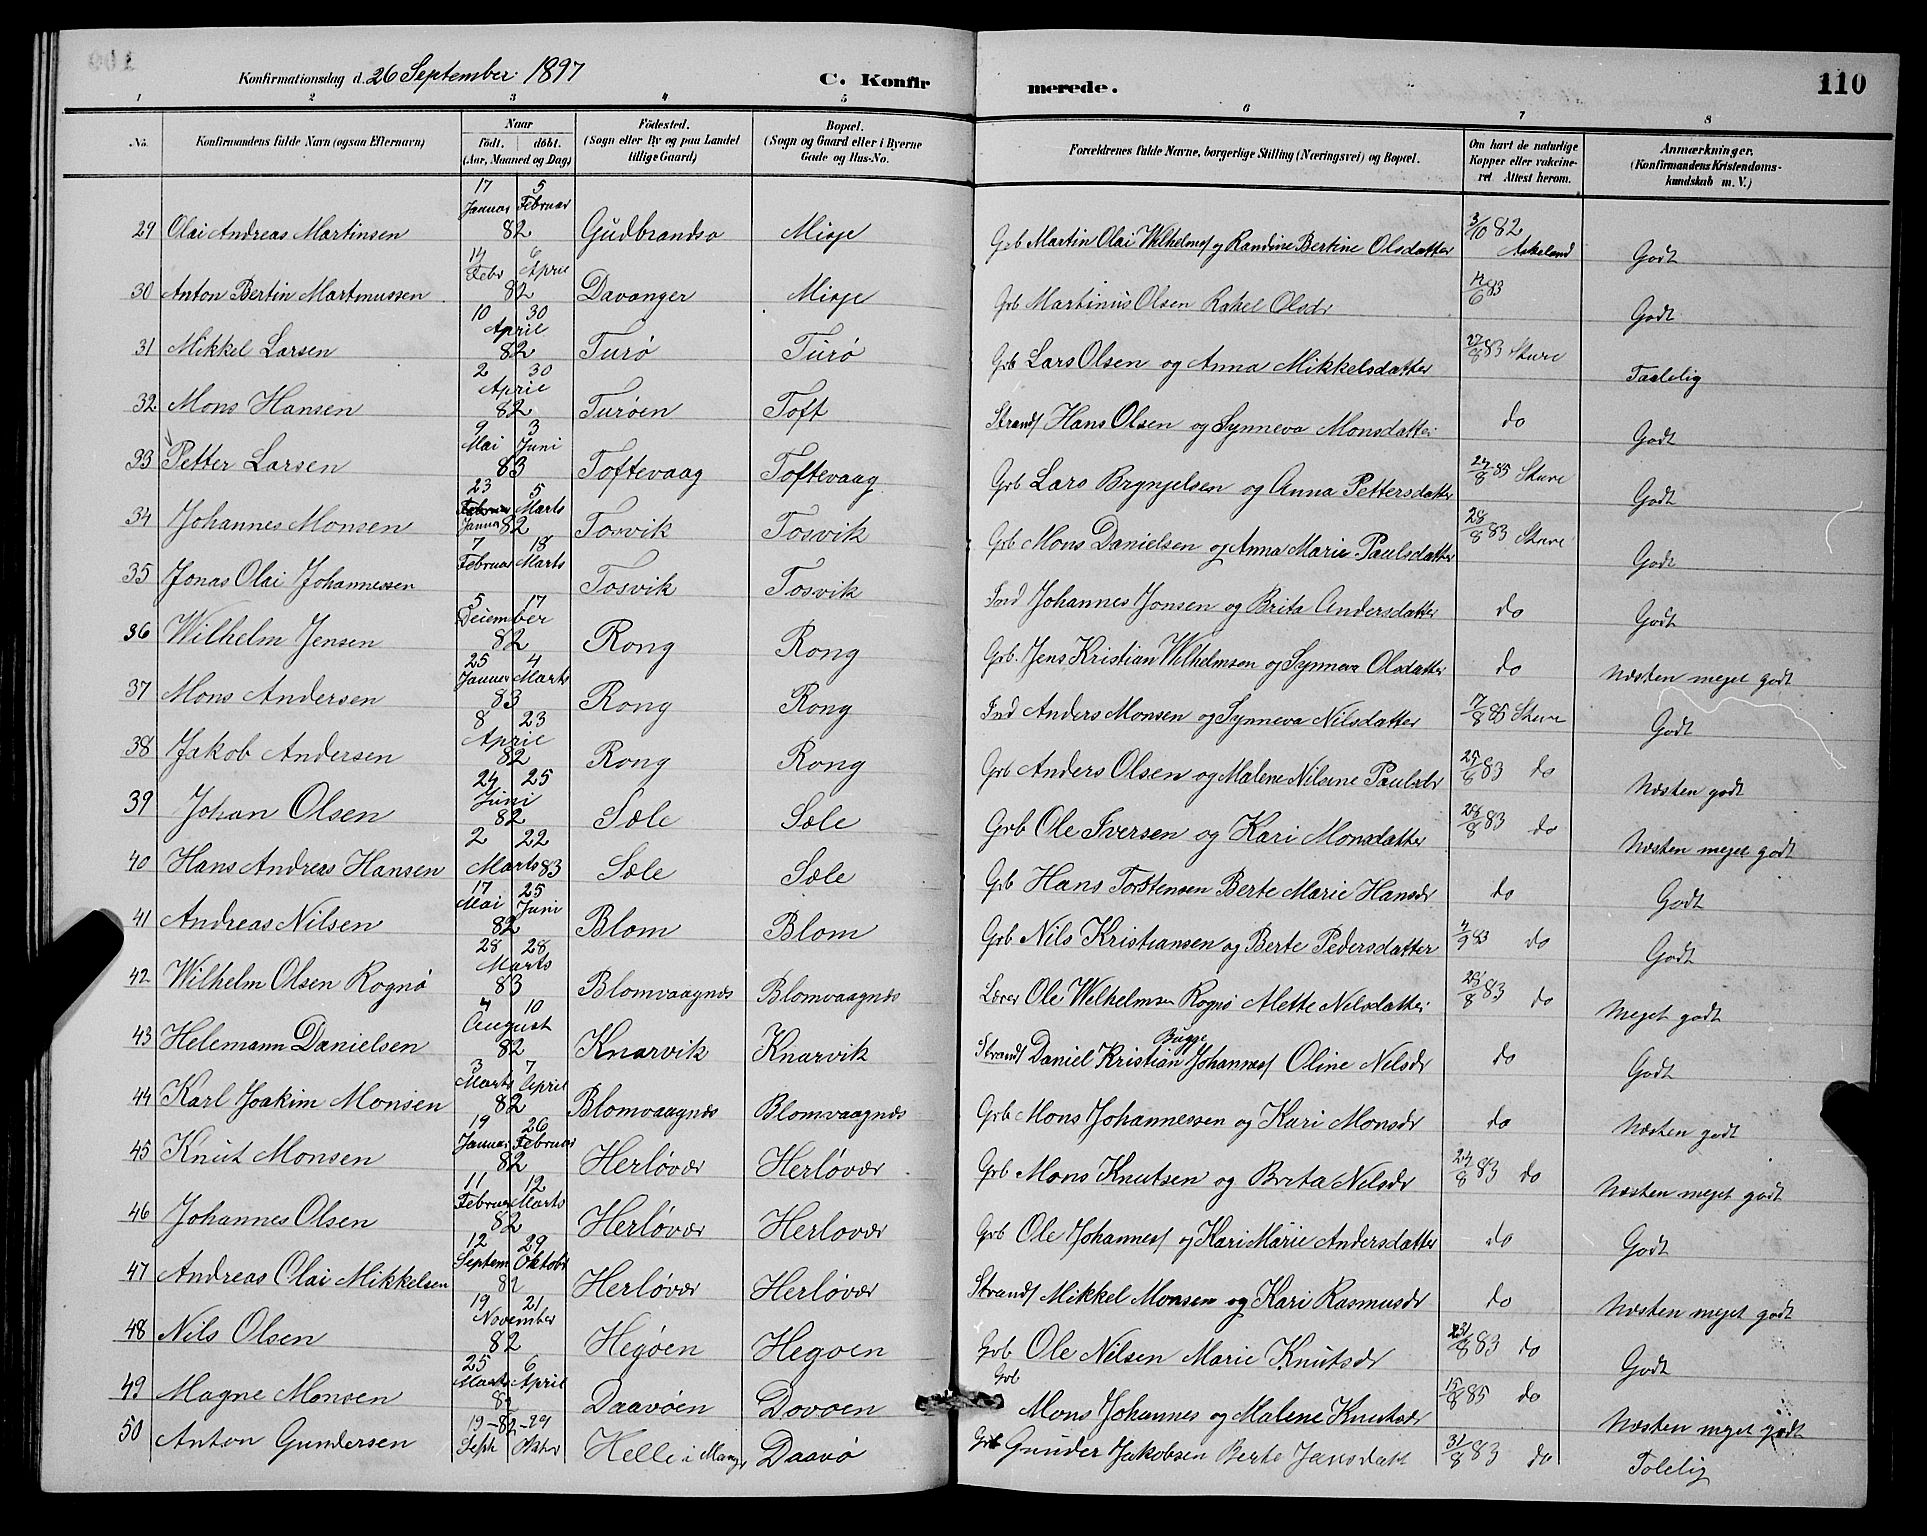 Konfirmationsdag d. 26 September 1897 C. Konfirmerede. 110
1 2 3 4 5 6 7 8
No. Konfirmandens fulde Navn (ogsaa Efternavn) Naar Födt. döbt. (Aar, Maaned og Dag) Födested. (Sogn eller By og paa Landet tillige Gaard) Bopæl. (Sogn og Gaard eller i Byerne Gade og Hus-No. Forældrenes fulde Navne, borgerlige Stilling (Næringsvei) og Bopæl. Om havt de naturlige Kopper eller vakcineret Attest herom. Anmærkninger. (Konfirmandens Kristendomskundskab m. V.)
29 Olai Andreas Martinsen 17 Januar 5 Februar 82 Gudbrandsø Misje Grb Martin Olai Wilhelms og Randine Bertine Olsdatter 3/10 82 Askeland Godt
30 Anton Bertin Martinussen 14 Febr 6 April 82 Davanger Misje Grb Martinus Olsen Rakel Olsdr 14/6 83 Godt
31 Mikkel Larsen 10 30 April 82 Turø Turø Grb Lars Olsen og Anna Mikkelsdatter 27/8 83 Sture Taalelig
32 Mons Hansen 2 30 April 82 Turøen Toft Strands Hans Olsen og Synneva Monsdatter do Godt
33 Petter Larsen 9 Mai 3 Juni 83 Toftevaag Toftevaag Grb Lars Brynjelsen og Anna Pettersdatter 24/8 85 Sture Godt
34 Johannes Monsen 23 Januar 5 Marts 82 Tosvik Tosvik Grb Mons Danielsen og Anna Marie Paulsdatter 28/8 83 Sture Godt
35 Jonas Olai Johannessen 7 Februar 18 Marts Tosvik Tosvik Ind Johannes Jonsen og Brita Andersdatter do Godt
36 Wilhelm Jensen 5 17 Deiember 82 Rong Rong Grb. Jens Kristian Wilhelmsen og Synneva Olsdatter do Næsten meget godt
37 Mons Andersen 25 Januar 4 Marts 83 Rong Rong Ind Anders Monsen og Synneva Nilsdatter 7/8 85 Sture Godt
38 Jakob Andersen 8 23 April 82 Rong Rong Grb Anders Olsen og Malene Nilsine Paulsdr 25/8 83 do Næsten godt
39 Johan Olsen 24 25 Juni 82 Sæle Sæle Grb Ole Iversen og Kari Monsdatter 28/8 83 do Næsten meget godt
40 Hans Andreas Hansen 2 22 Marts 83 Sæle Sæle Grb Hans Torstensen Berte Marie Hansdr do Godt
41 Andreas Nilsen 17 Mai 25 Juni 82 Blom Blom Grb Nils Kristiansen og Berte Pedersdatter 4/9 83 do Godt
42 Wilhelm Olsen Rognø 28 28 Marts 83 Blomvaagnæs Blomvaagnæs Lærer Ole Wilhelmsen Rognø Alette Nilsdatter 28/8 83 do Meget godt
43 Helemann Danielsen 4 10 August 82 Knarvik Knarvik Strands Daniel Kristian Bugge Johannes Oline Nilsdr do Godt
44 Karl Joakim Monsen 3 Marts 7 April 82 Blomvaagnæs Blomvaagnæs Grb Mons Johannessen og Kari Monsdr do Næsten godt
45 Knut Monsen 19 Januar 26 Februar 82 Herløvær Herløvær Grb Mons Knutsen og Brita Nilsdr 24/8 83 do Næsten meget godt
46 Johannes Olsen 11 Februar 12 Marts 82 Herløvær Herlovær Grb Ole Johannes og Kari Marie Andersdatter do Godt
47 Andreas Olai Mikkelsen 12 Septem 29 Oktobr 82 Herløvær Herløvær Strands Mikkel Monsen og Kari Rasmusdr do Næsten meget godt
48 Nils Olsen 19 21 November 82 Hegøen Hegøen Grb Ole Nilsen Marie Knutsdr 23/8 83 do Godt
49 Magne Monsen 25 Marts 6 April 82 Daavøen Dovøen Grb Mons Johannes og Malene Knutsdr 15/8 85 do Næsten meget godt
50 Anton Gundersen 19-82-29 Septr Oktbr Helle i Manger Daavø Grb Gunder Jakobsen Berte Jensdatt 31/8 83 do Tolelig